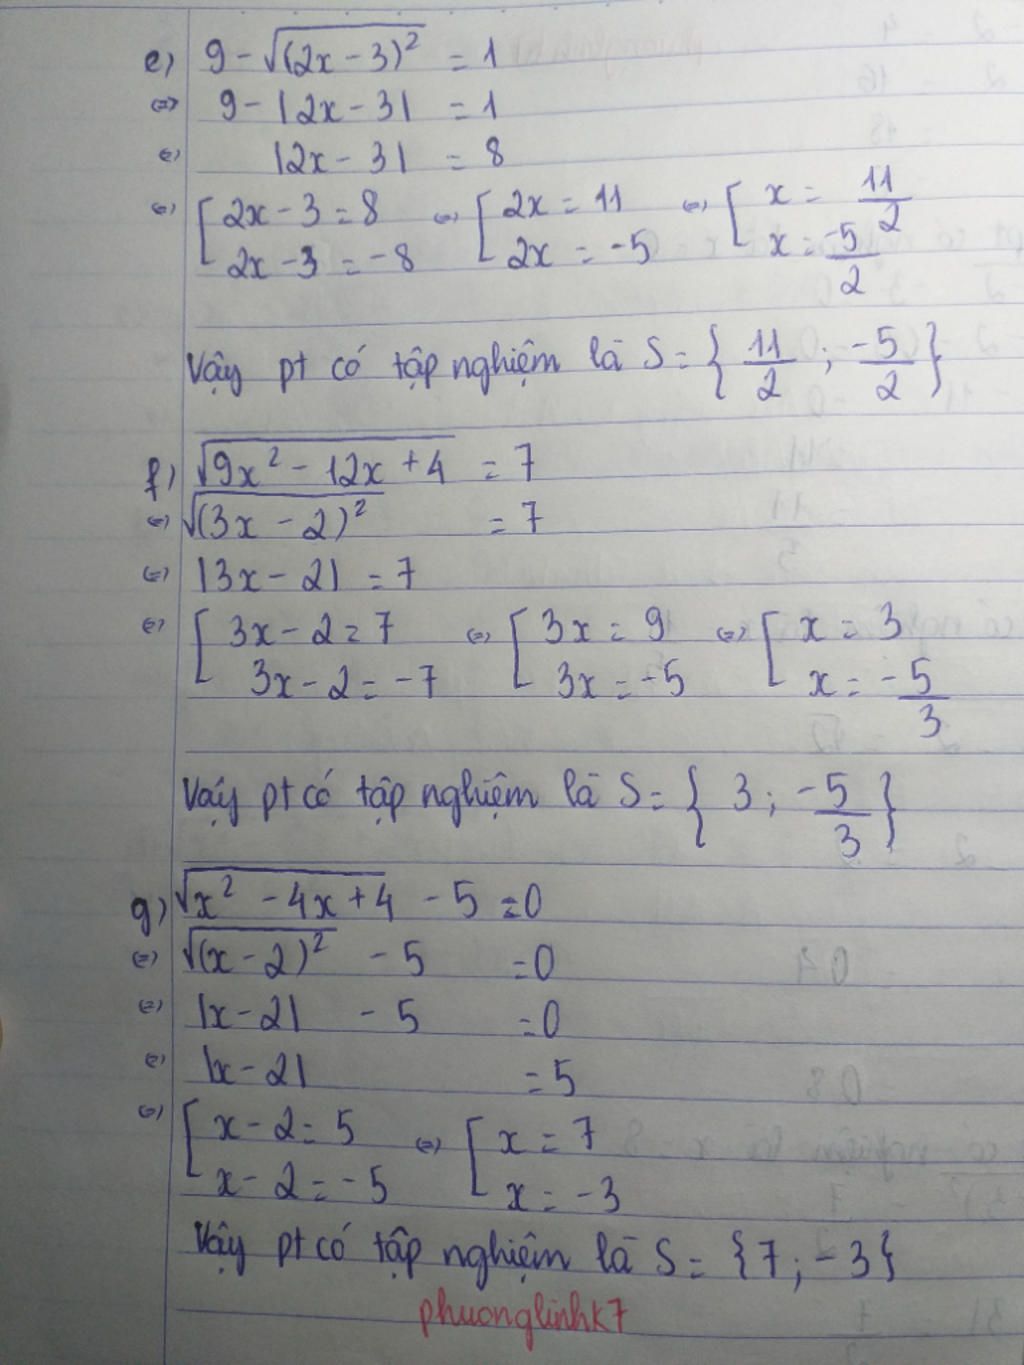 e) 9 - √(2x - 3)² = 1
<=> 9 - |2x - 3| = 1
<=> |2x - 3| = 8
<=> [ 2x - 3 = 8 <=> [ 2x = 11 <=> [ x = 11/2
2x - 3 = -8 2x = -5 x = -5/2
Vậy pt có tập nghiệm là S = { 11/2 ; -5/2 }
f) √9x² - 12x + 4 = 7
<=> √(3x - 2)² = 7
<=> |3x - 2| = 7
<=> [ 3x - 2 = 7 <=> [ 3x = 9 <=> [ x = 3
3x - 2 = -7 3x = -5 x = -5/3
Vậy pt có tập nghiệm là S = { 3 ; -5/3 }
g) √x² - 4x + 4 - 5 = 0
<=> √(x - 2)² - 5 = 0
<=> |x - 2| - 5 = 0
<=> |x - 2| = 5
<=> [ x - 2 = 5 <=> [ x = 7
x - 2 = -5 x = -3
Vậy pt có tập nghiệm là S = {7 ; -3}
phuonglinhk7